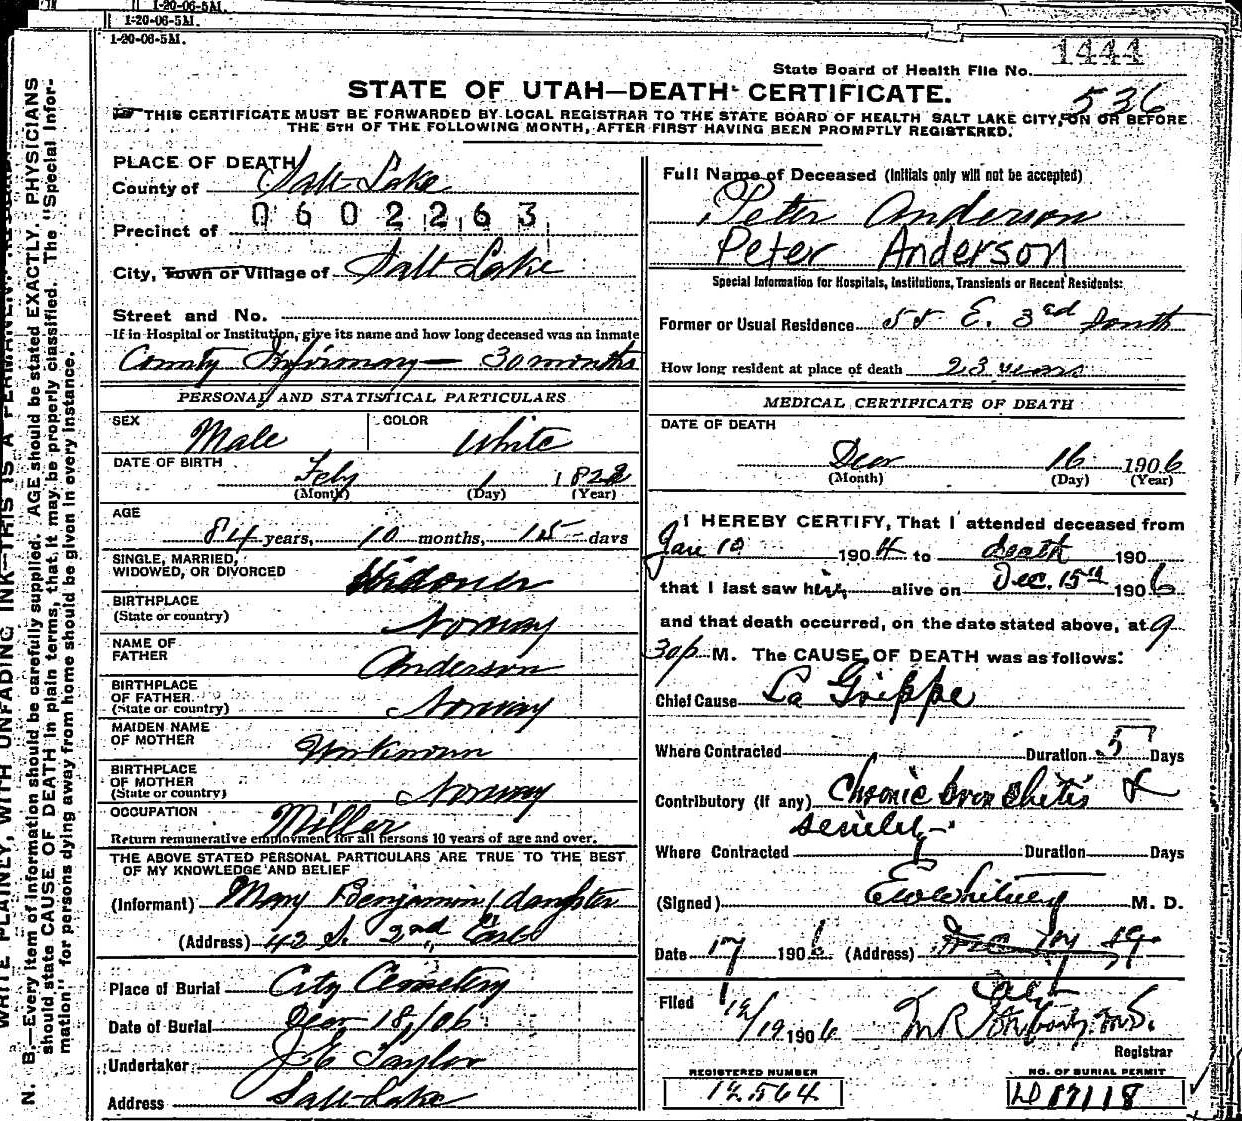 1-20-06-5M.
1-20-06-5M.
1-20-06-5M.
1444
State Board of Health File No.
STATE OF UTAH—DEATH CERTIFICATE.
536
THIS CERTIFICATE MUST BE FORWARDED BY LOCAL REGISTRAR TO THE STATE BOARD OF HEALTH SALT LAKE CITY, ON OR BEFORE
THE 5TH OF THE FOLLOWING MONTH, AFTER FIRST HAVING BEEN PROMPTLY REGISTERED.
WRITE PLAINLY, WITH UNFADING INK—THIS IS A PERMANENT
N. B.—Every item of information should be carefully supplied. AGE should be stated EXACTLY. PHYSICIANS
should state CAUSE OF DEATH in plain terms, that it may be properly classified. The "Special Infor-
mation" for persons dying away from home should be given in every instance.
PLACE OF DEATH
County of Salt Lake
0602263
Precinct of
City, Town or Village of Salt Lake
Street and No.
If in Hospital or Institution, give its name and how long deceased was an inmate
County Infirmary — 30 months
PERSONAL AND STATISTICAL PARTICULARS
SEX Male COLOR White
DATE OF BIRTH Feby 1 1822
(Month) (Day) (Year)
AGE
84 years, 10 months, 15 days
SINGLE, MARRIED,
WIDOWED, OR DIVORCED Widower
BIRTHPLACE
(State or country) Norway
NAME OF
FATHER Anderson
BIRTHPLACE
OF FATHER
(State or country) Norway
MAIDEN NAME
OF MOTHER Unknown
BIRTHPLACE
OF MOTHER
(State or country) Norway
OCCUPATION Miller
Return remunerative employment for all persons 10 years of age and over.
THE ABOVE STATED PERSONAL PARTICULARS ARE TRUE TO THE BEST
OF MY KNOWLEDGE AND BELIEF
(Informant) Mary Benjamin / daughter
(Address) 42 S. 2nd East
Place of Burial City Cemetery
Date of Burial Decr 18/06
Undertaker Taylor
Address Salt Lake
Full Name of Deceased (Initials only will not be accepted)
Peter Anderson
Peter Anderson
Special Information for Hospitals, Institutions, Transients or Recent Residents:
Former or Usual Residence 55 E. 3rd South
How long resident at place of death 23 years
MEDICAL CERTIFICATE OF DEATH
DATE OF DEATH
Decr 16 1906
(Month) (Day) (Year)
I HEREBY CERTIFY, That I attended deceased from
Jan 10 1904 to death 190
that I last saw him alive on Dec. 15th 1906
and that death occurred, on the date stated above, at 9
30 p M. The CAUSE OF DEATH was as follows:
Chief Cause La Grippe
Where Contracted Duration 5 Days
Contributory (if any) Chronic bronchitis &
senility
Where Contracted Duration Days
(Signed) E W Whitney M. D.
Date 17 1906 (Address)
Filed 12/19 1906
Registrar
REGISTERED NUMBER
12564
NO. OF BURIAL PERMIT
LD 87118